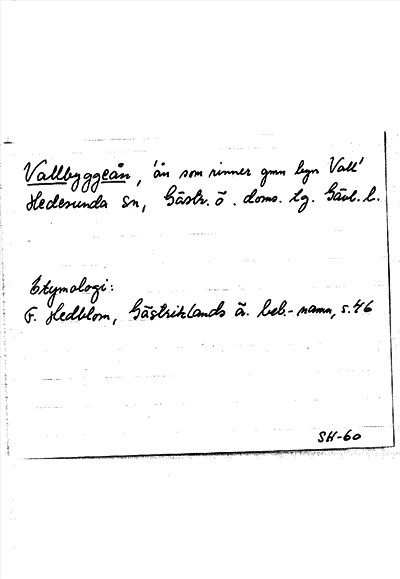 Vallbyggeån, 'ån som rinner gnm byn Vall'
Hedesunda sn, Gästr. ö. doms. tg. Gävl. l.
Etymologi:
F. Hedblom, Gästriklands ä. beb.-namn, s. 46
SH-60